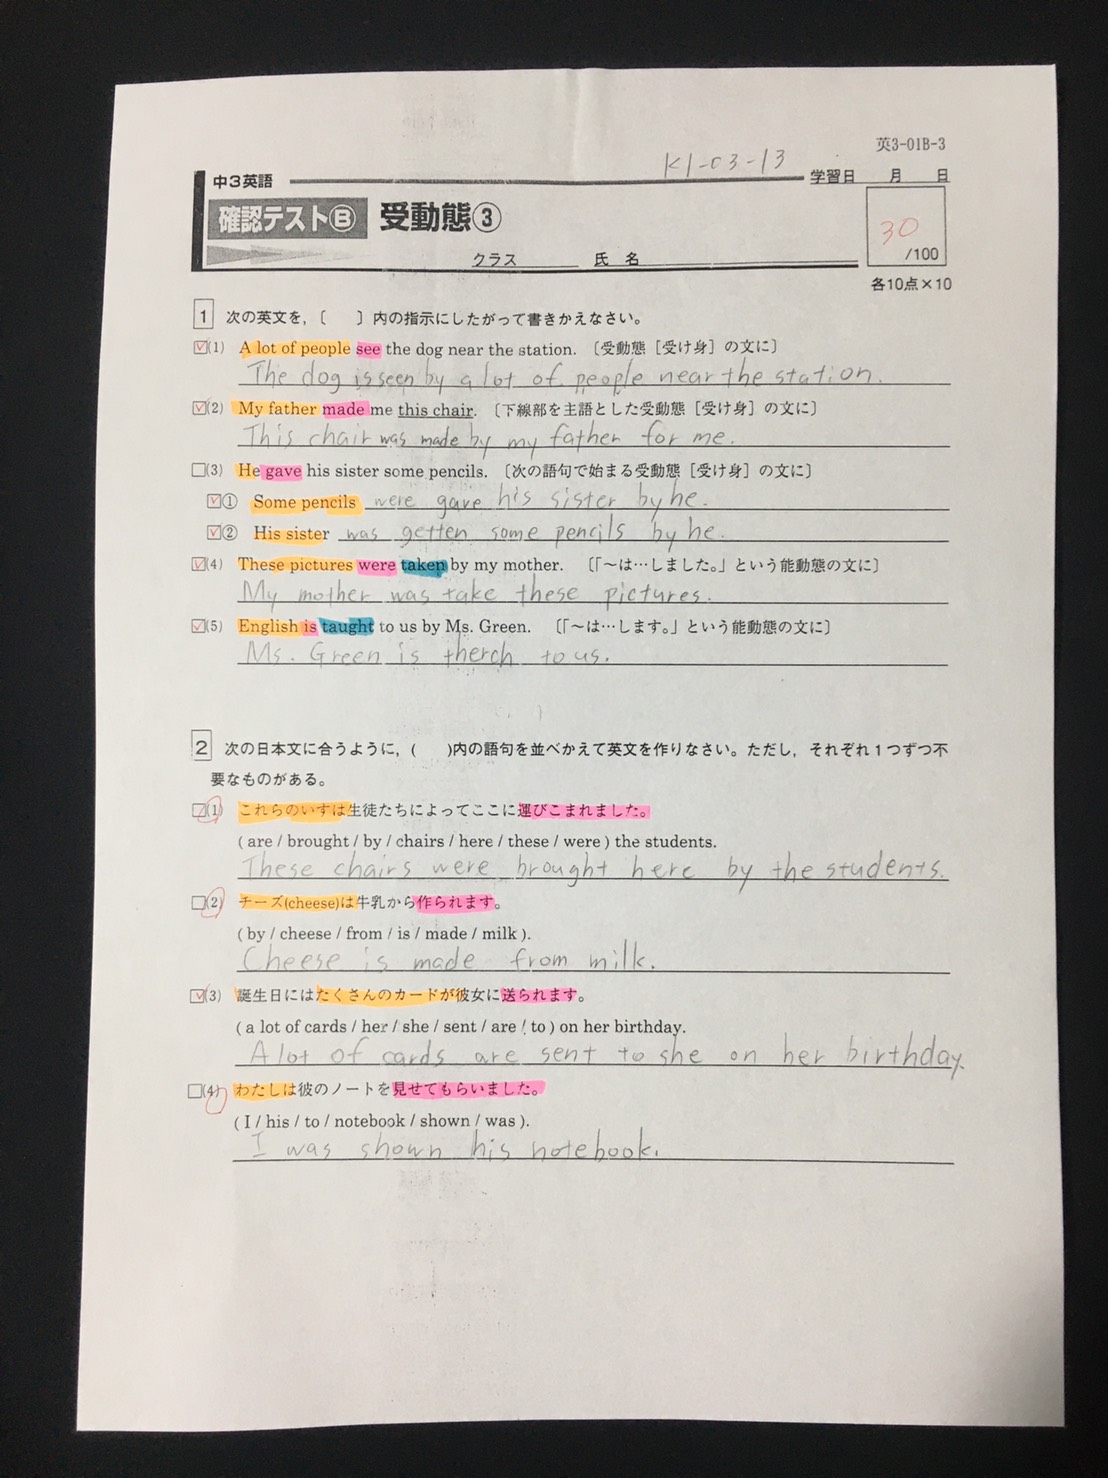 英3-01B-3
K1-03-13
中3英語
学習日　月　日
確認テストⒷ 受動態③
30
/100
クラス　氏 名
各10点×10
1 次の英文を，〔　〕内の指示にしたがって書きかえなさい。
(1) A lot of people see the dog near the station. 〔受動態［受け身］の文に〕
The dog is seen by a lot of people near the station.
(2) My father made me this chair. 〔下線部を主語とした受動態［受け身］の文に〕
This chair was made by my father for me.
(3) He gave his sister some pencils. 〔次の語句で始まる受動態［受け身］の文に〕
① Some pencils were gave his sister by he.
② His sister was getten some pencils by he.
(4) These pictures were taken by my mother. 〔「～は…しました。」という能動態の文に〕
My mother was take these pictures.
(5) English is taught to us by Ms. Green. 〔「～は…します。」という能動態の文に〕
Ms. Green is therch to us.
2 次の日本文に合うように，(　)内の語句を並べかえて英文を作りなさい。ただし，それぞれ1つずつ不
要なものがある。
(1) これらのいすは生徒たちによってここに運びこまれました。
( are / brought / by / chairs / here / these / were ) the students.
These chairs were brought here by the students.
(2) チーズ(cheese)は牛乳から作られます。
( by / cheese / from / is / made / milk ).
Cheese is made from milk.
(3) 誕生日にはたくさんのカードが彼女に送られます。
( a lot of cards / her / she / sent / are / to ) on her birthday.
A lot of cards are sent to she on her birthday.
(4) わたしは彼のノートを見せてもらいました。
( I / his / to / notebook / shown / was ).
I was shown his notebook.